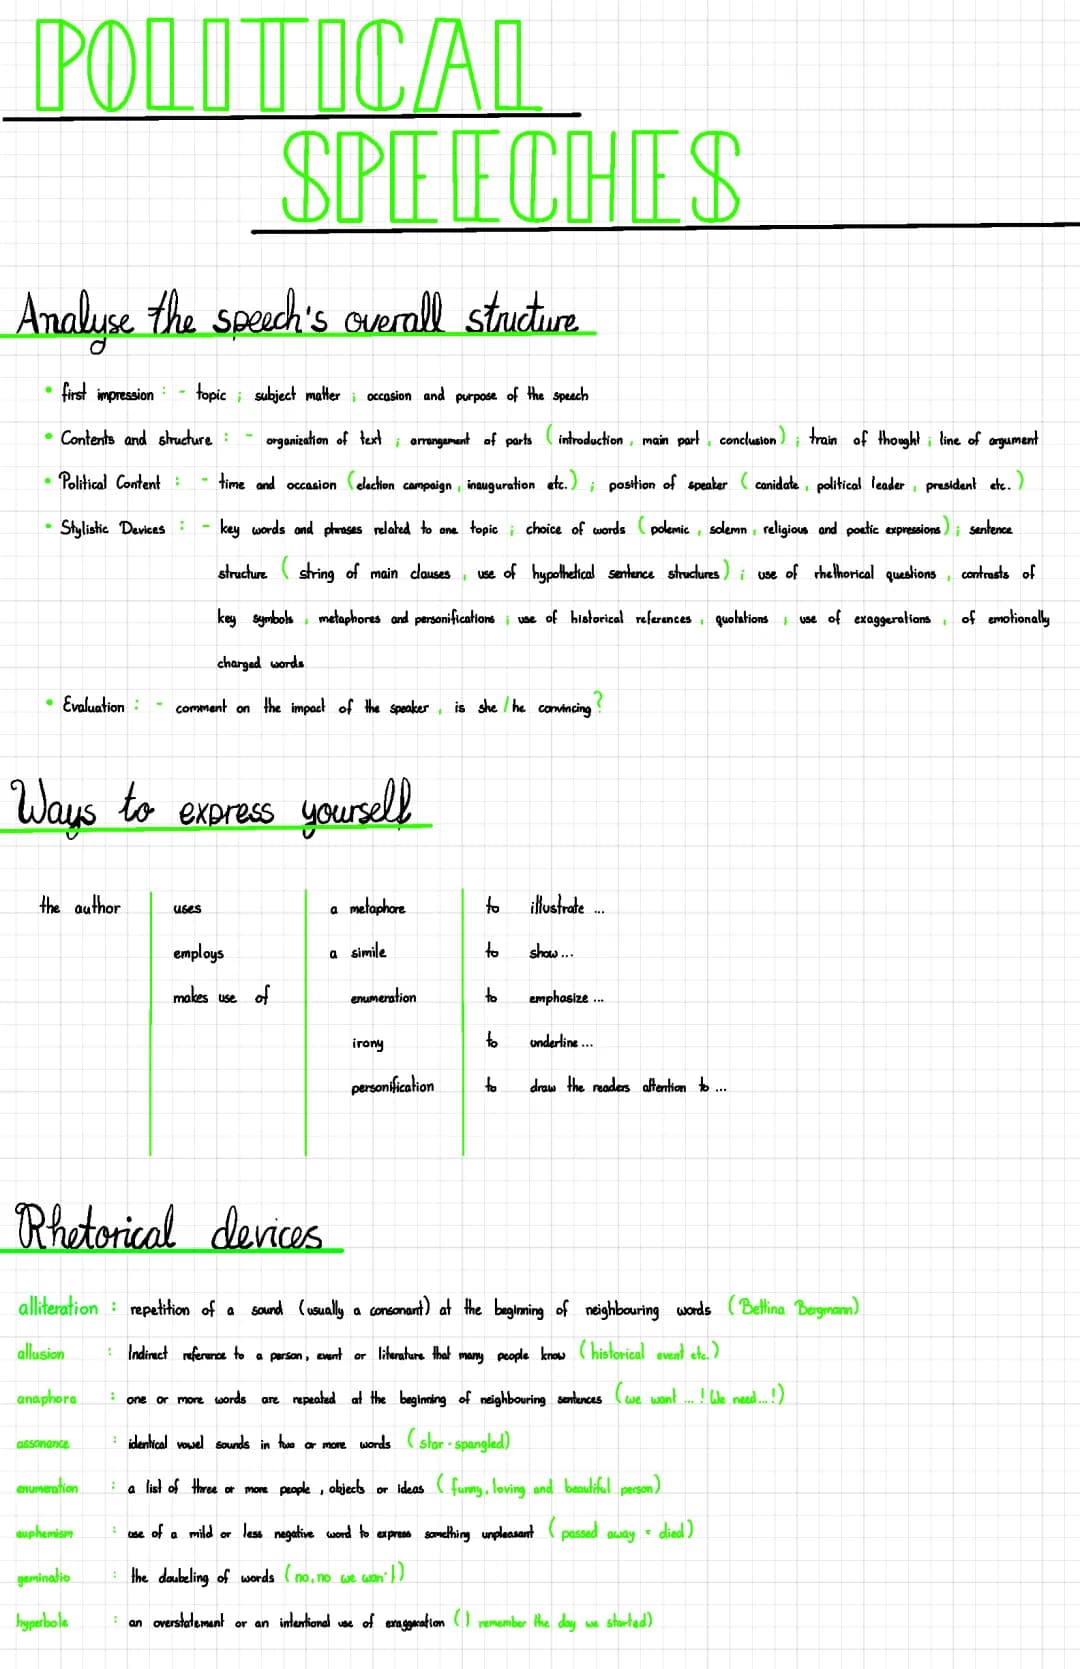 POLITICAL
SPEECHES
Analyse the speech's overall structure
• first impression : - topic ; subject matter ; occasion and purpose of the speech
• Contents and structure : - organization of text ; arrangement of parts ( introduction , main part , conclusion ) ; train of thought ; line of argument
• Political Content : - time and occasion ( election campaign , inauguration etc. ) ; position of speaker ( canidate , political leader , president etc. )
• Stylistic Devices : - key words and phrases related to one topic ; choice of words ( polemic , solemn , religious and poetic expressions ) ; sentence
structure ( string of main clauses , use of hypothetical sentence structures ) ; use of rhethorical questions , contrasts of
key symbols , metaphores and personifications ; use of historical references , quotations ; use of exaggerations , of emotionally
charged words
• Evaluation : - comment on the impact of the speaker , is she / he convincing ?
Ways to express yourself
the author uses a metaphore to illustrate ...
employs a simile to show ...
makes use of enumeration to emphasize ...
irony to underline ...
personification to draw the readers attention to ...
Rhetorical devices
alliteration : repetition of a sound (usually a consonant) at the beginning of neighbouring words (Bettina Bergmann)
allusion : Indirect reference to a person, event or literature that many people know (historical event etc.)
anaphora : one or more words are repeated at the beginning of neighbouring sentences (we want ... ! We need ... !)
assonance : identical vowel sounds in two or more words (star - spangled)
enumeration : a list of three or more people , objects or ideas ( funny, loving and beautiful person)
euphemism : use of a mild or less negative word to express something unpleasant ( passed away = died)
geminatio : the doubeling of words ( no, no we won't)
hyperbole : an overstatement or an intentional use of exaggeration (I remember the day we started)